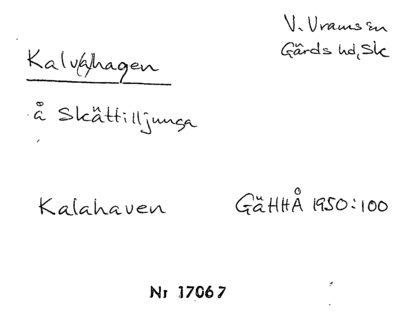 V. Vramsen
Gärds hd, Sk
Kalv(a)hagen
å Skättilljunga
Kalahaven
GäHHÅ 1950:100
Nr 17067